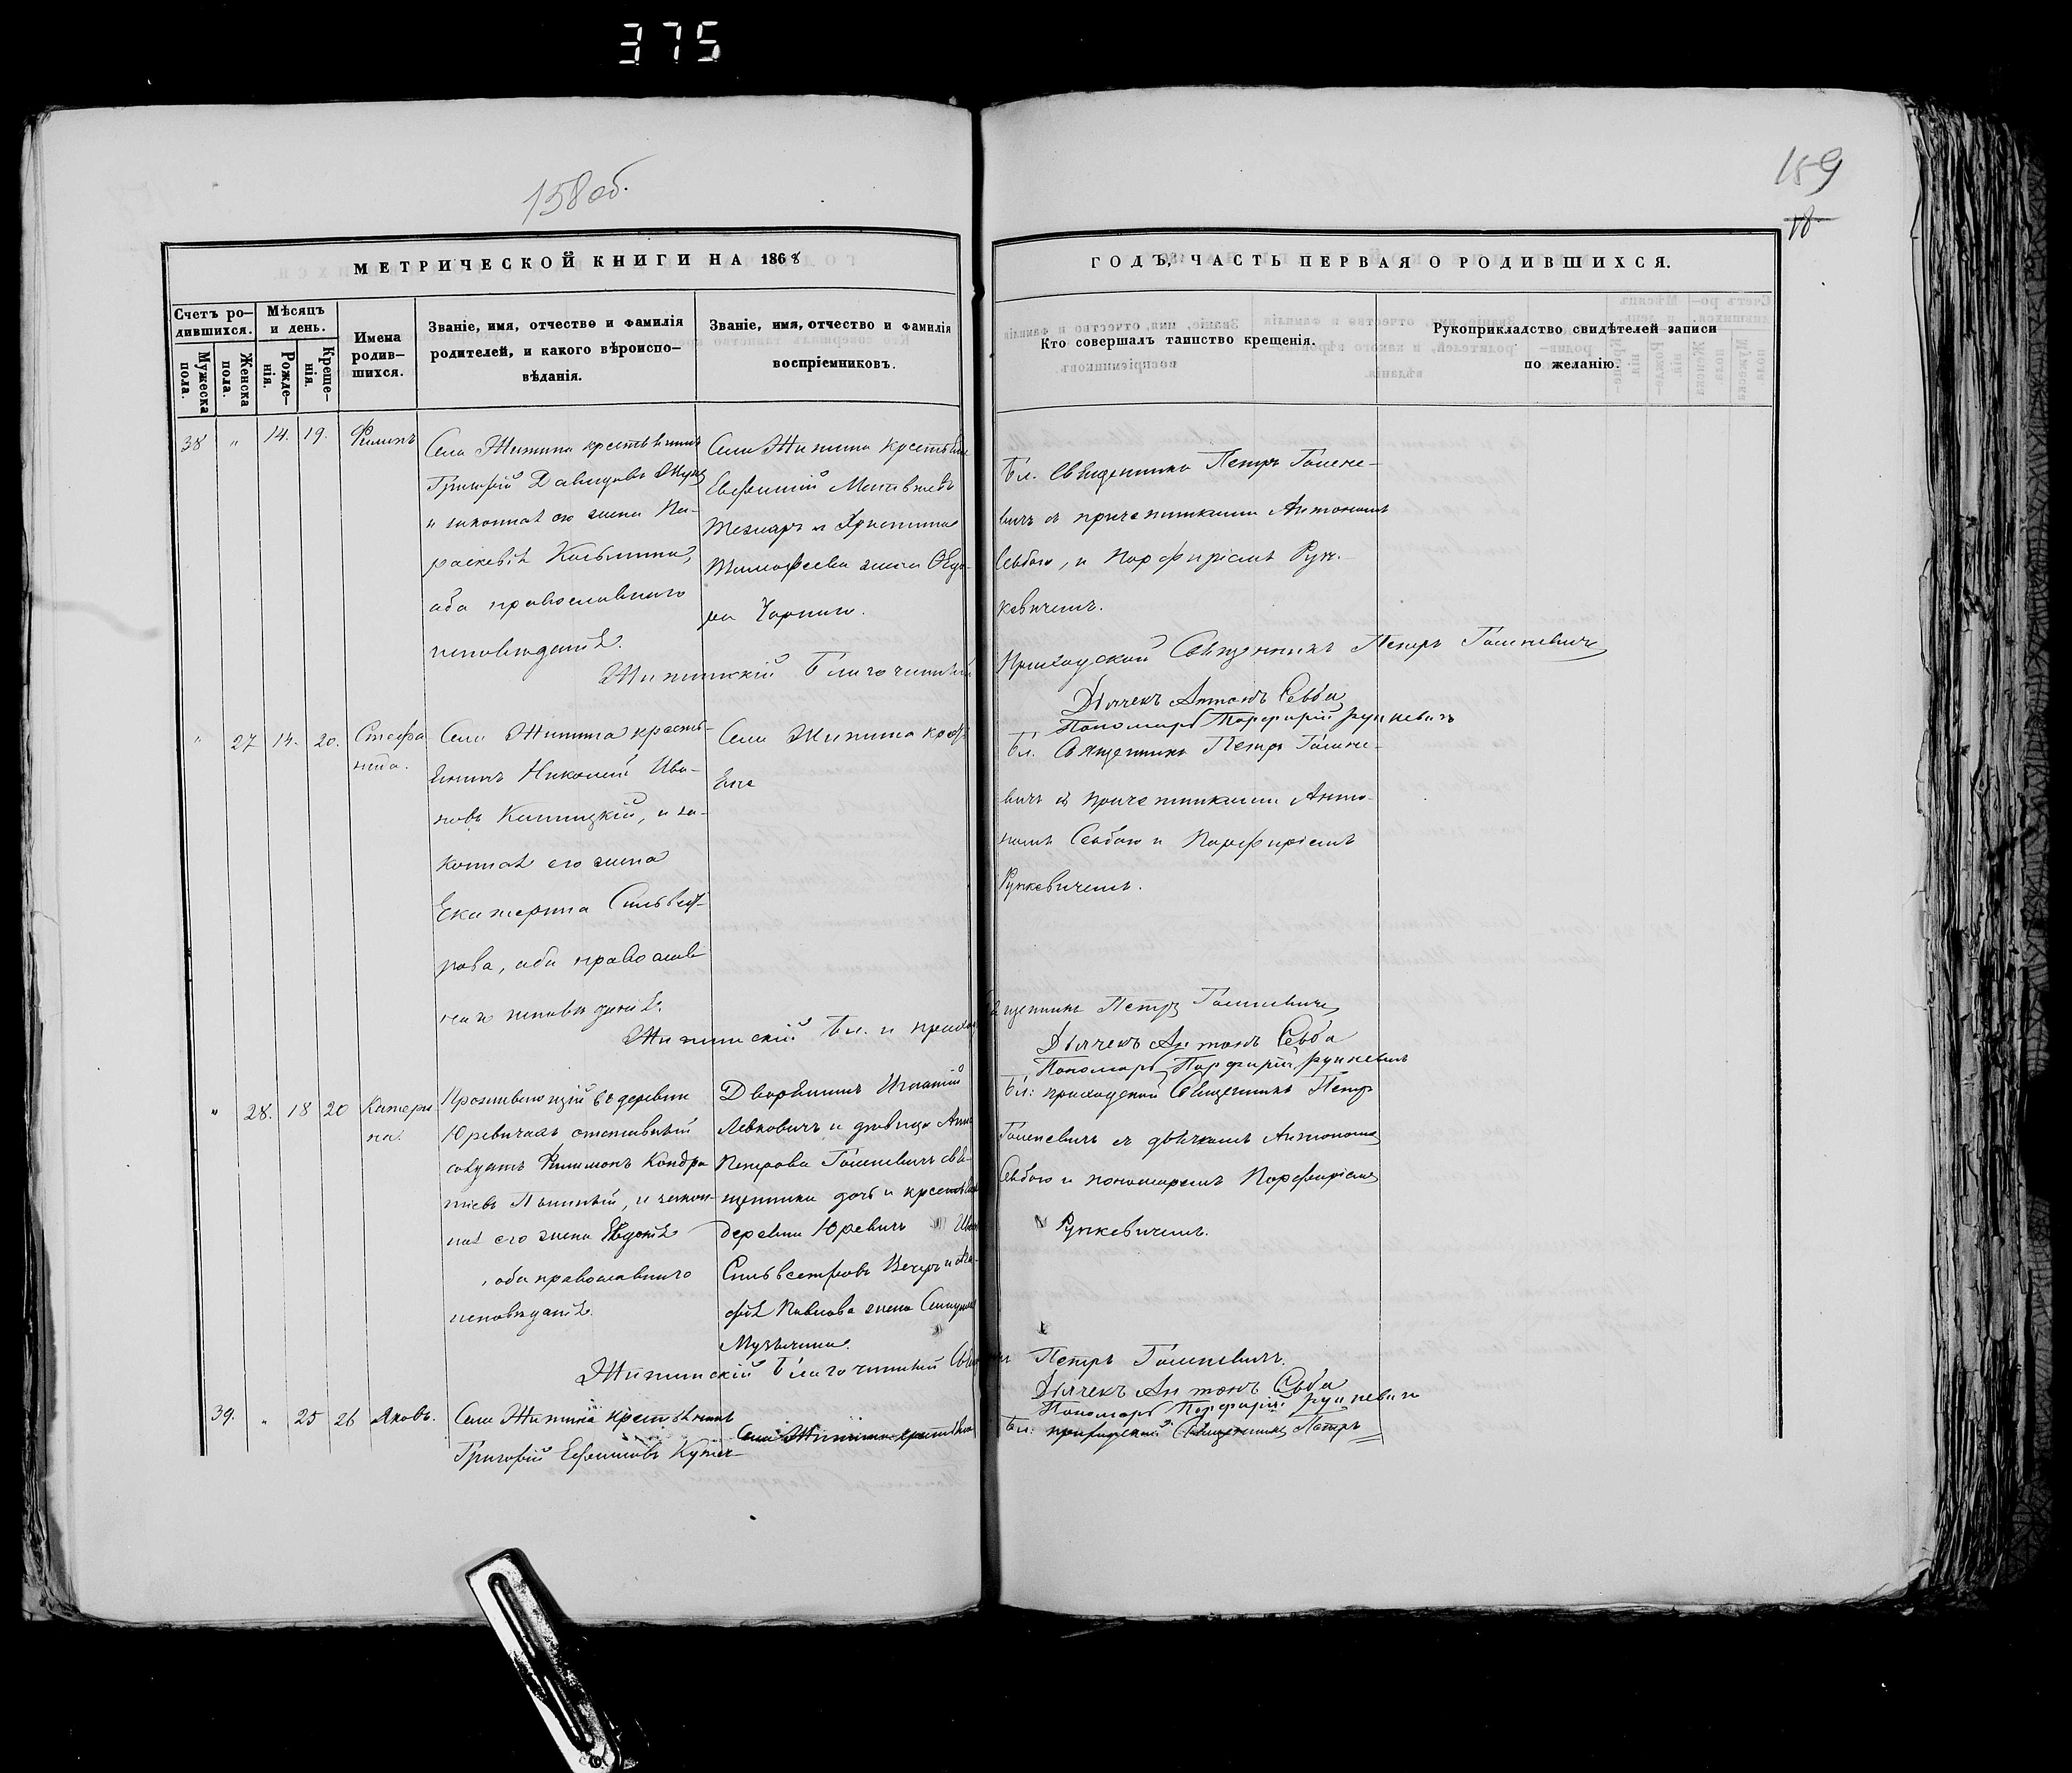 375
158 об.
159
18
МЕТРИЧЕСКОЙ КНИГИ НА 1868
ГОДЪ, ЧАСТЬ ПЕРВАЯ О РОДИВШИХСЯ.
Счетъ ро–
дившихся.
Мѣсяцъ
и день.
Мужеска
пола.
Женска
пола.
Рожде–
нія.
Креще–
нія.
Имена
родив–
шихся.
Званіе, имя, отчество и фамилія
родителей, и какого вѣроиспо–
вѣданія.
Званіе, имя, отчество и фамилія
воспріемниковъ.
Кто совершалъ таинство крещенія.
Рукоприкладство свидѣтелей записи
по желанію.
38 „ 14. 19. Филипъ
Села Житина крестьянинъ
Григорій Давидовъ
и законная его жена Па-
раскевія Козьмина,
оба православнаго
исповѣданія.
Села Житина крестьяне
Евфимій Матвѣевъ
и Христина
Тимофеева жена Ѳедо-
ра Чорнаго.
Бл. Священникъ Петръ Голене-
вичъ съ причетниками Антономъ
Сѣвбою, и Порфиріемъ Рун-
кевичемъ.
Житинскій Благочинный
Приходской Священникъ Петръ Голеневичъ
Дьячекъ Антонъ Севба
Пономарь Порфирій Рункевичъ
„ 27 14. 20. Стефа
нида.
Села Житина кресть-
янинъ Николай Ива-
новъ, и за-
конная его жена
Екатерина Сильвест-
рова, оба православ-
наго исповѣданія.
Села Житина кресть
яне
Бл. Священникъ Петръ Голене-
вичъ съ причетниками Анто-
номъ Севбою и Порфиріемъ
Рункевичемъ.
Житинскій Бл. и приход
Священникъ Петръ Голеневичъ
Дьячекъ Антонъ Севба
Пономарь Порфирій Рункевичъ
„ 28. 18 20 Катери
на.
Проживающій въ деревни
Юревичахъ отставный
солдатъ Филимонъ Кондра
тіевъ, и закон-
ная его жена Евдокія
, оба православнаго
исповѣданія.
Дворянинъ Игнатій
Левковичъ и дѣвица Анна
Петрова Голеневичъ свя-
щенника дочь и крестьяне
деревни Юревичъ
Сильвестровъ Вечеръ и
фія Павлова жена
Музычина.
Бл. приходской Священникъ Петръ
Голеневичъ съ дьячкомъ Антономъ
Сѣвбою и пономаремъ Порфиріемъ
Рункевичемъ.
Житинскій Благочинный Священникъ Петръ Голеневичъ.
Дьячекъ Антонъ Севба
Пономарь Порфирій Рункевичъ
39. „ 25 26 Яковъ.
Села Житина крестьянинъ
Григорій Ефимовъ
Села Житина крестьяне
Бл. приходской Священникъ Петръ